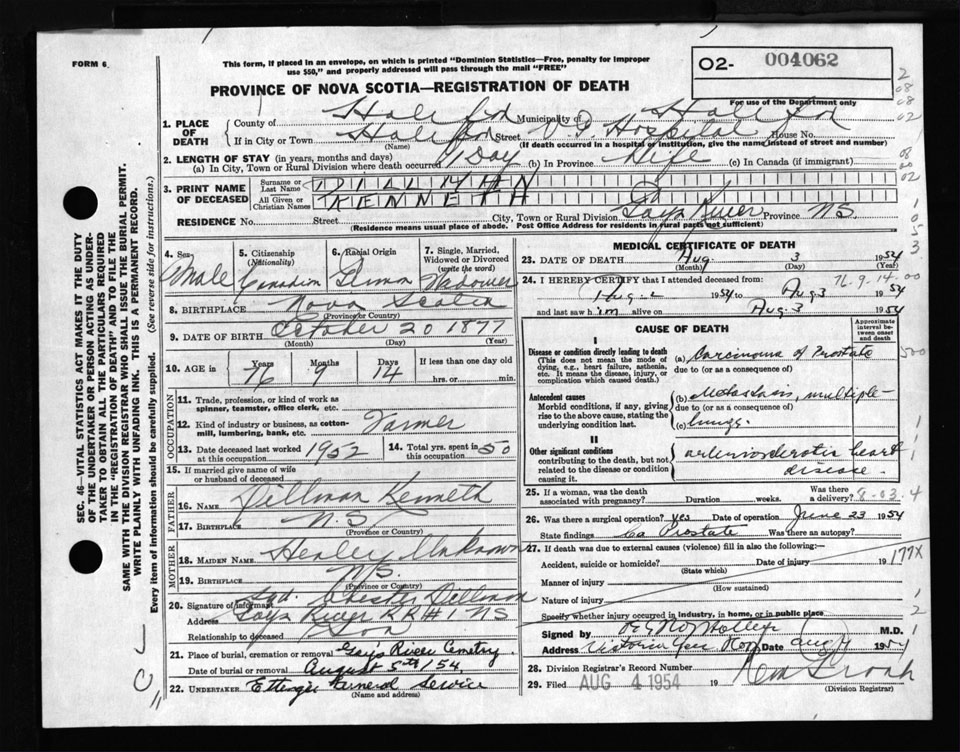 FORM 6.
This form, if placed in an envelope, on which is printed "Dominion Statistics—Free, penalty for improper
use $50," and properly addressed will pass through the mail "FREE"
O2- 004062
For use of the Department only
PROVINCE OF NOVA SCOTIA—REGISTRATION OF DEATH
1. PLACE OF DEATH
County of Halifax Municipality of Halifax
If in City or Town Halifax Street V. G. Hospital House No.
(Name) (If death occurred in a hospital or institution, give the name instead of street and number)
2. LENGTH OF STAY (in years, months and days)
(a) In City, Town or Rural Division where death occurred 1 Day (b) In Province Life (c) In Canada (if immigrant)
3. PRINT NAME OF DECEASED
Surname or Last Name DILLMAN
All Given or Christian Names KENNETH
RESIDENCE No. Street City, Town or Rural Division Gays River Province N.S.
(Residence means usual place of abode. Post Office Address for residents in rural parts not sufficient)
4. Sex Male
5. Citizenship (Nationality) Canadian
6. Racial Origin
7. Single, Married, Widowed or Divorced (write the word) Widower
8. BIRTHPLACE Nova Scotia
(Province or Country)
9. DATE OF BIRTH October 20 1877
(Month) (Day) (Year)
10. AGE in Years 76 Months 9 Days 14 If less than one day old
hrs. or min.
OCCUPATION
11. Trade, profession, or kind of work as
spinner, teamster, office clerk, etc.
12. Kind of industry or business, as cotton-
mill, lumbering, bank, etc. Farmer
13. Date deceased last worked at this occupation 1952
14. Total yrs. spent in this occupation 50
15. If married give name of wife
or husband of deceased
FATHER
16. NAME Dillman Kenneth
17. BIRTHPLACE N.S.
(Province or Country)
MOTHER
18. MAIDEN NAME Henley Unknown
19. BIRTHPLACE N.S.
(Province or Country)
20. Signature of informant Sgd. Chester Dillman
Address Gays River RR#1 NS
Relationship to deceased Son
21. Place of burial, cremation or removal Gays River Cemetry.
Date of burial or removal August 5th/54
22. UNDERTAKER Ettinger Funeral Service
(Name and address)
MEDICAL CERTIFICATE OF DEATH
23. DATE OF DEATH Aug. 3 1954
(Month) (Day) (Year)
24. I HEREBY CERTIFY that I attended deceased from:
Aug 2 1954 to Aug 3 1954
and last saw him alive on Aug. 3 1954
CAUSE OF DEATH
Approximate interval between onset and death
I
Disease or condition directly leading to death
(This does not mean the mode of dying, e.g., heart failure, asthenia, etc. It means the disease, injury, or complication which caused death.
(a) Carcinoma of Prostate
due to (or as a consequence of)
Antecedent causes
Morbid conditions, if any, giving rise to the above cause, stating the underlying condition last.
(b) Metastasis, multiple-
due to (or as a consequence of)
(c) lungs.
II
Other significant conditions
contributing to the death, but not related to the disease or condition causing it.
arteriosclerotic heart
disease.
25. If a woman, was the death associated with pregnancy? Duration weeks. Was there a delivery?
26. Was there a surgical operation? yes Date of operation June 23 1954
State findings Ca Prostate Was there an autopsy?
27. If death was due to external causes (violence) fill in also the following:—
Accident, suicide or homicide? Date of injury 19
(State which)
Manner of injury
(How sustained)
Nature of injury
Specify whether injury occurred in industry, in home, or in public place
177X
Signed by M.D.
Address Victoria Gen Hosp Date Aug 4 1954
28. Division Registrar's Record Number
29. Filed AUG 4 1954 19
(Division Registrar)
SEC. 46—VITAL STATISTICS ACT MAKES IT THE DUTY
OF THE UNDERTAKER OR PERSON ACTING AS UNDER-
TAKER TO OBTAIN ALL THE PARTICULARS REQUIRED
IN THE "REGISTRATION OF DEATH" AND TO FILE THE
SAME WITH THE DIVISION REGISTRAR WHO SHALL ISSUE THE BURIAL PERMIT.
WRITE PLAINLY WITH UNFADING INK. THIS IS A PERMANENT RECORD.
Every item of Information should be carefully supplied. (See reverse side for instructions.)